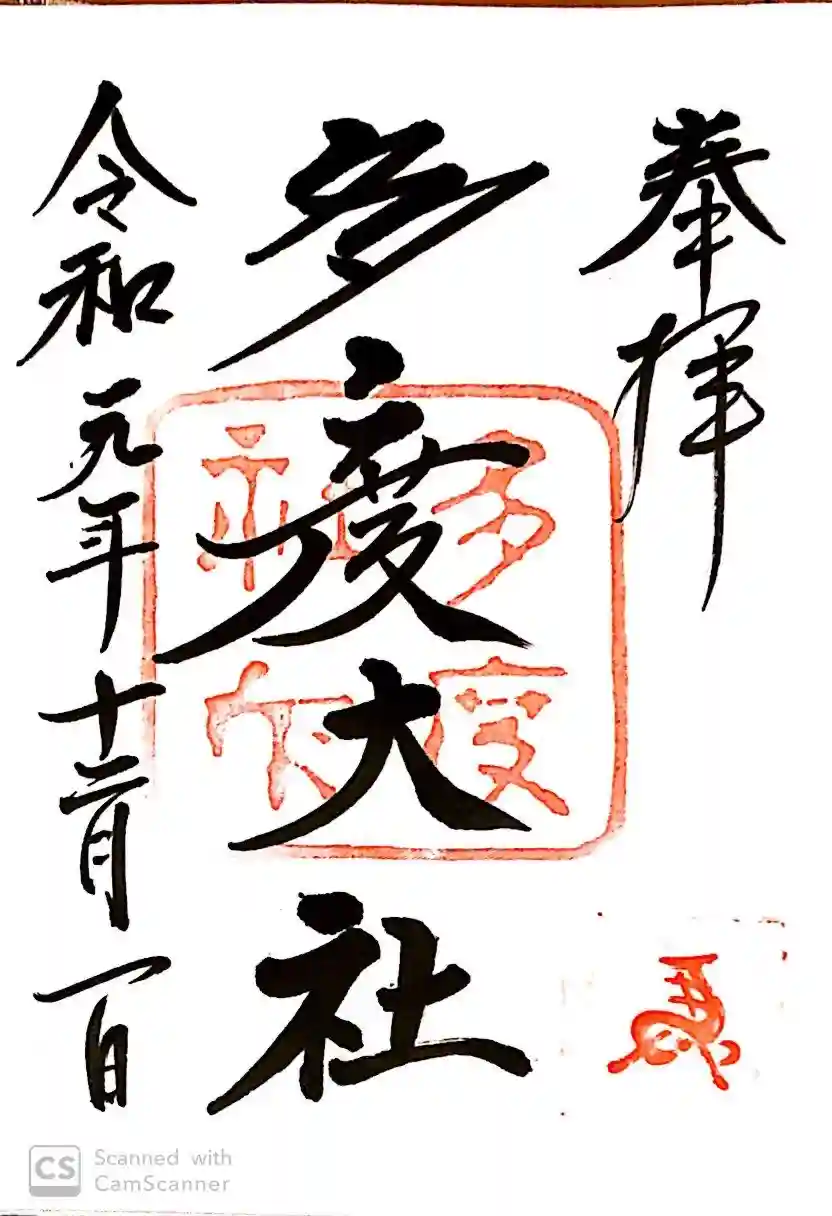 奉拝
多度大社
令和元年十二月一日
多度
社印
Scanned with
CamScanner